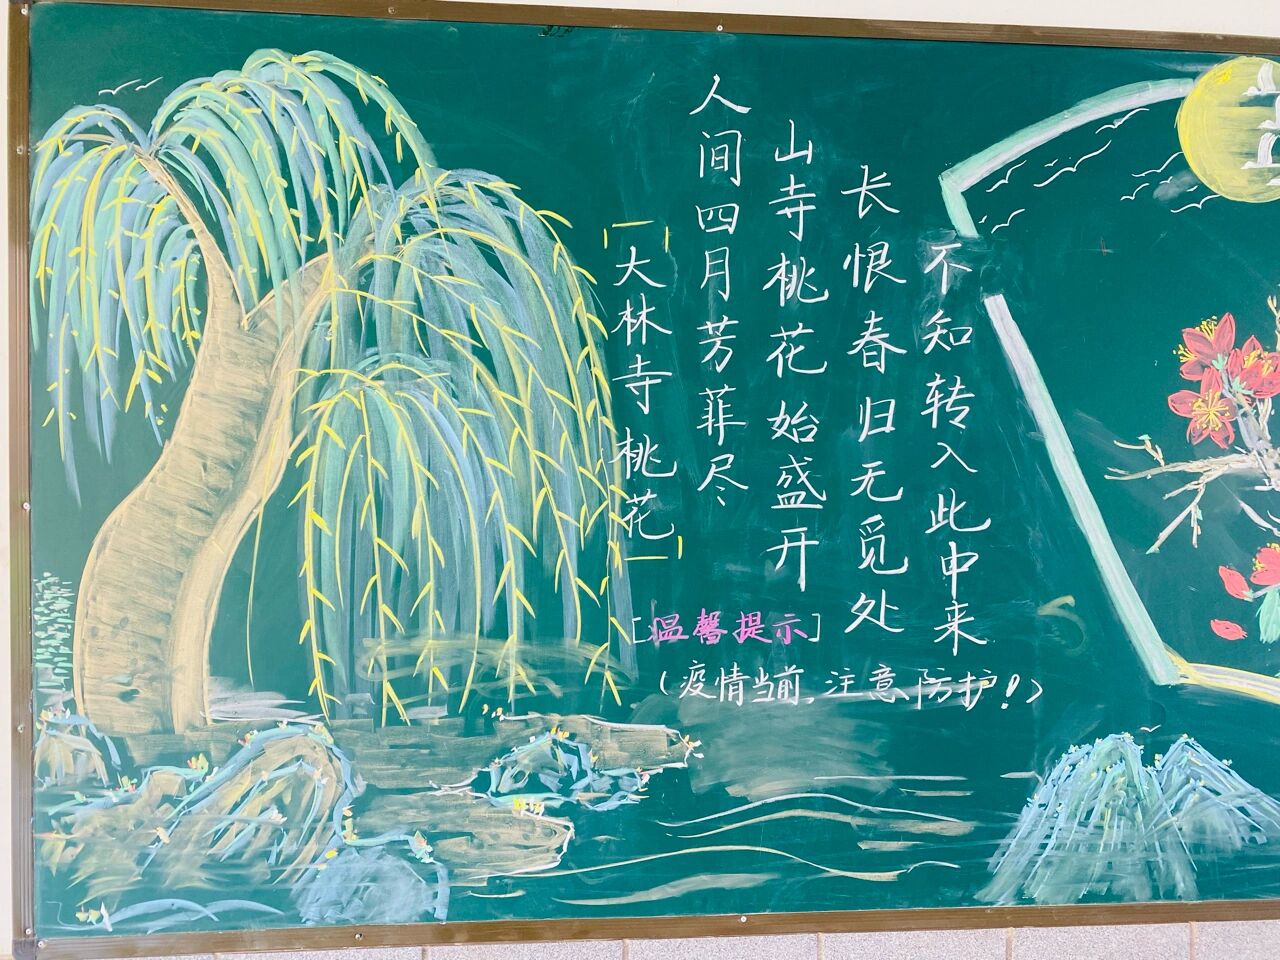 大林寺桃花
人间四月芳菲尽
山寺桃花始盛开
长恨春归无觅处
不知转入此中来
[温馨提示]
(疫情当前,注意防护!)